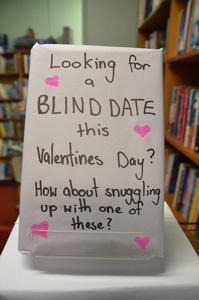 Looking for
a
BLIND DATE
this
Valentines Day?
How about snuggling
up with one of
these?